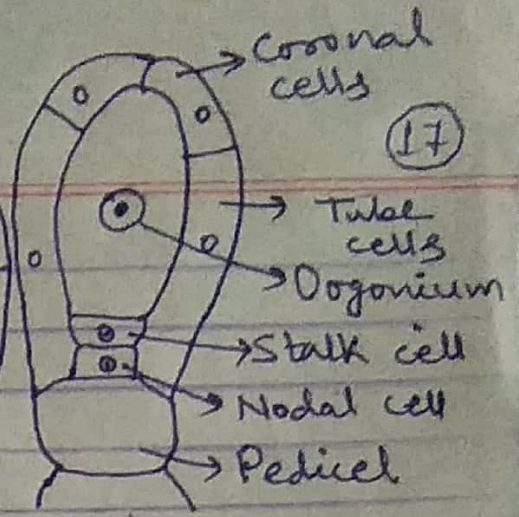 Coronal
cells
17
Tube
cells
Oogonium
Stalk cell
Nodal cell
Pedicel